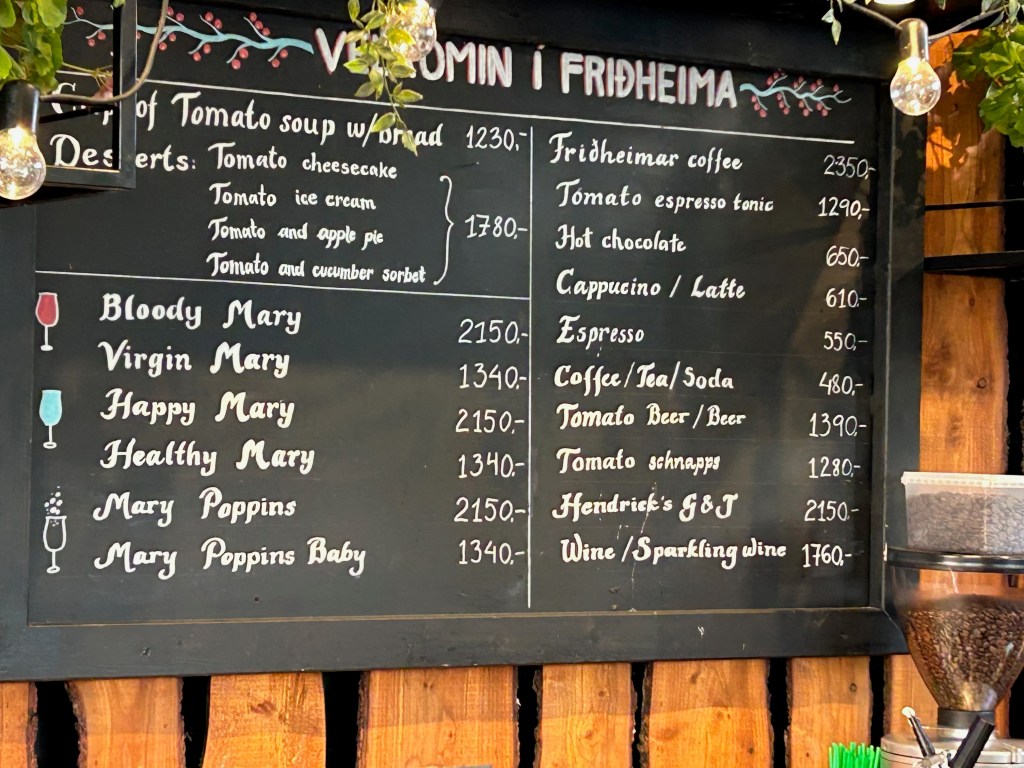 OMIN Í FRIÐHEIMA
of Tomato soup w/bread 1230,-
Desserts: Tomato cheesecake
Tomato ice cream
Tomato and apple pie
Tomato and cucumber sorbet
1780.-
Bloody Mary 2150,-
Virgin Mary 1340,-
Happy Mary 2150,-
Healthy Mary 1340.-
Mary Poppins 2150,-
Mary Poppins Baby 1340,-
Friðheimar coffee 2350,-
Tomato espresso tonic 1290,-
Hot chocolate 650,-
Cappucino / Latte 610,-
Espresso 550,-
Coffee/Tea/Soda 480,-
Tomato Beer/Beer 1390,-
Tomato schnapps 1280,-
Hendrick's G&T 2150,-
Wine /Sparkling wine 1760,-